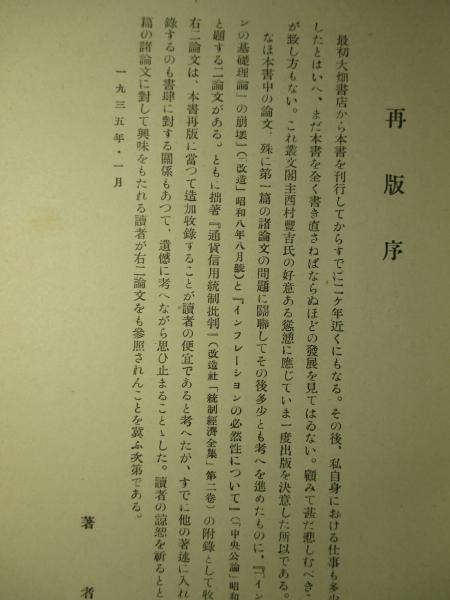 再版序
最初大畑書店から本書を刊行してからすでに二ケ年近くにもなる。その後、私自身における仕事も多少
したとはいへ、まだ本書を全く書き直さねばならぬほどの發展を見てはゐない。顧みて甚だ悲しむべきこ
が致し方もない。これ叢文閣主西村豐吉氏の好意ある慫慂に應じていま一度出版を決意した所以である。
なほ本書中の論文、殊に第一篇の諸論文の問題に關聯してその後多少とも考へを進めたものに、『イン
ンの基礎理論」の崩壞』(『改造』昭和八年八月號)と『インフレーションの必然性について』(『中央公論』昭和
と題する二論文がある。ともに拙著『通貨信用統制批判』(改造社「統制經濟全集」第二卷)の附錄として收
右二論文は、本書再版に當つて追加收錄することが讀者の便宜であると考へたが、すでに他の著述に入れ
錄するのも書肆に對する關係もあつて、遺憾に考へながら思ひ止まることゝした。讀者の諒恕を祈るとと
篇の諸論文に對して興味をもたれる讀者が右二論文をも參照されんことを冀ふ次第である。
一九三五年・一月
著者